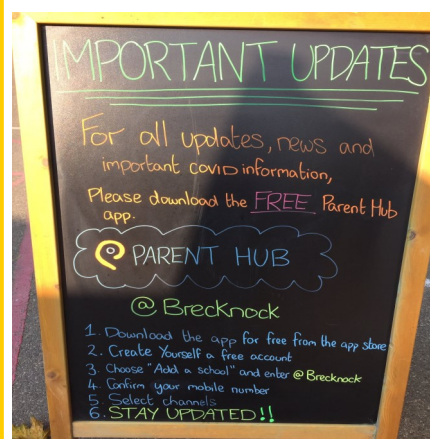 IMPORTANT UPDATES
For all updates, news and
important covid information,
Please download the FREE Parent Hub
app.
PARENT HUB
@ Brecknock
1. Download the app for free from the app store
2. Create Yourself a free account
3. Choose "Add a school" and enter @Brecknock
4. Confirm your mobile number
5. Select channels
6. STAY UPDATED!!